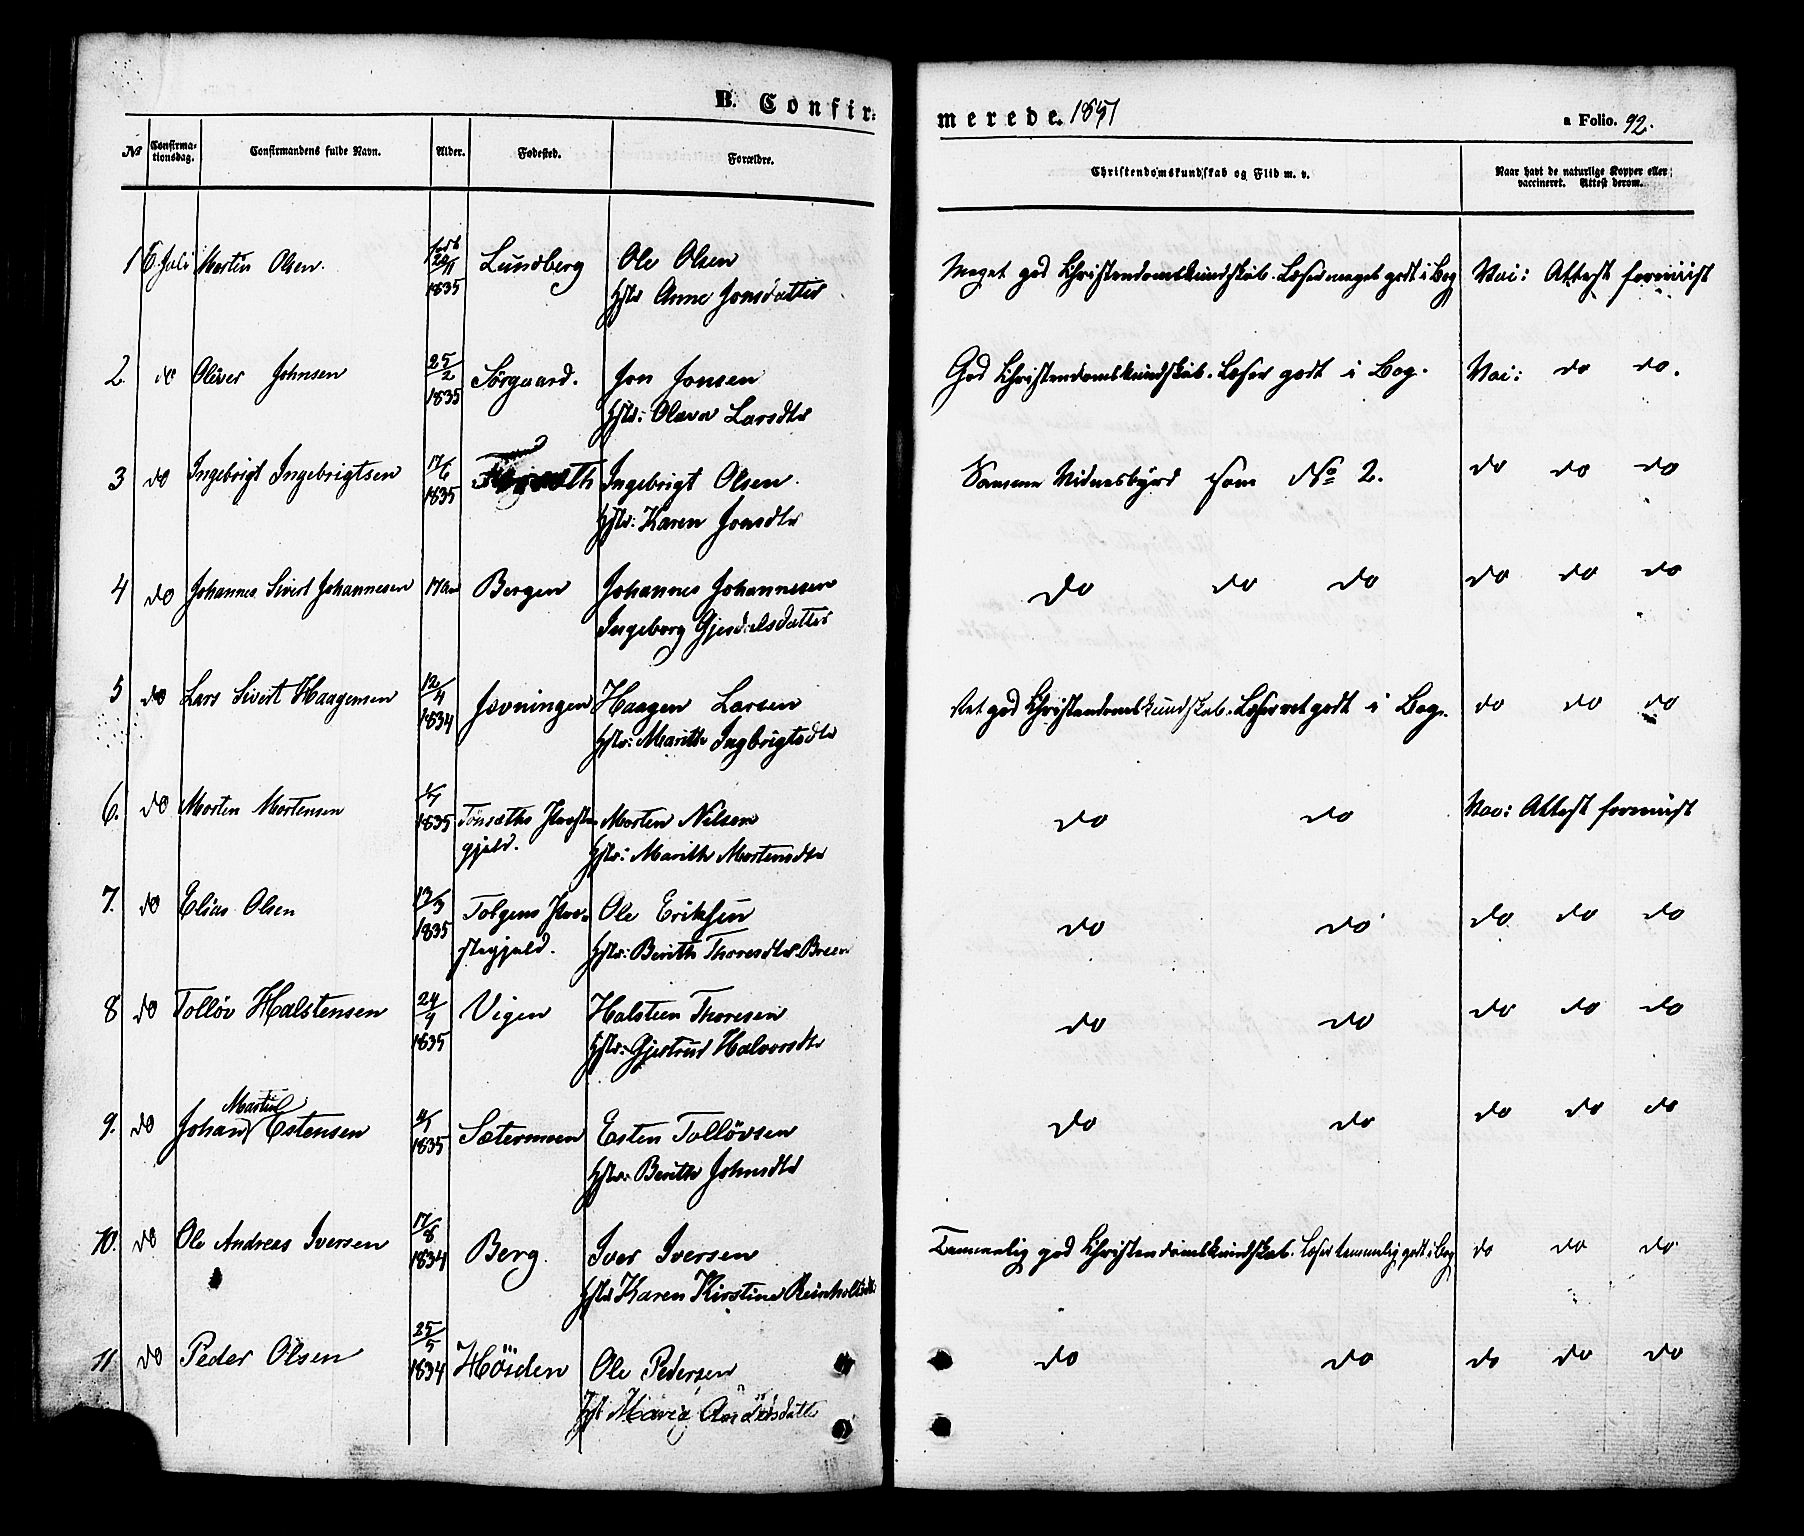 B. Confir-
merede. 1851
a Folio. 92.
№ Confirma-tionsdag. Confirmandens fulde Navn. Alder. Fødested. Forældre. Christendomskundskab og Flid m. v. Naar havt de naturlige Kopper eller vaccineret. Attest derom.
1 6. Juli Martin Olsen. 1835 Lundberg Ole Olsen Meget god Christendomskundskab. Læser meget godt i Bog Vac: Attest forevist
Hstr Anne Jonsdatter
2. do Oliver Johnsen 25/2 1835 Sørgaard. Jon Jonsen God Christendomskundskab. Læser godt i Bog. Vac: do do.
Hstr: Olava Larsdtr
3 do Ingebrigt Ingebrigtsen 17/6 1835 Ingebrigt Olsen. Samme Vidnesbyrd som No 2. do do do
Hstr: Karen Jonsdtr
4 do Johannes Sivert Johannesen 17 Aar Bergen Johannes Johannesen do do do do do do
Ingeborg Gjerdrudsdatter
5 do Lars Sivert Haagensen 12/4 1834 Jævningen Haagen Larsen Ret god Christendomskundskab. Læser ret godt i Bog. do do do
Hstr: Marith Ingbrigtsdtr
6. do Morten Mortensen 1835 Tönsæths Præste- Morten Nilsen do do Vac: Attest forevist
gjeld. Hstr: Marith Mortensdtr
7. do Elias Olsen 13/3 1835 Tolgens Præ- Ole Eriksen do do do do do
stegjeld. Hstr: Berith Thoresdtr Breen
8 do Tolløv Halstensen 24/9 1835 Vigen Halsteen Thoresen do do do do do
Hstr: Gjertrud Halvorsdtr
9. do Johan Martin Estensen 1835 Sætermoen Esten Tolløvsen do do do do do
Hstr: Berith Johnsdtr
10. do Ole Andreas Iversen 17/8 1834 Berg. Iver Iversen Temmelig god Christendomskundskab. Læser temmelig godt i Bog do do do
Hstr Karen Kirstine Reinholdsdtr
11. do Peder Olsen 25/5 1834 Høiden Ole Pedersen do do do do do
Hst Maria Andersdatter